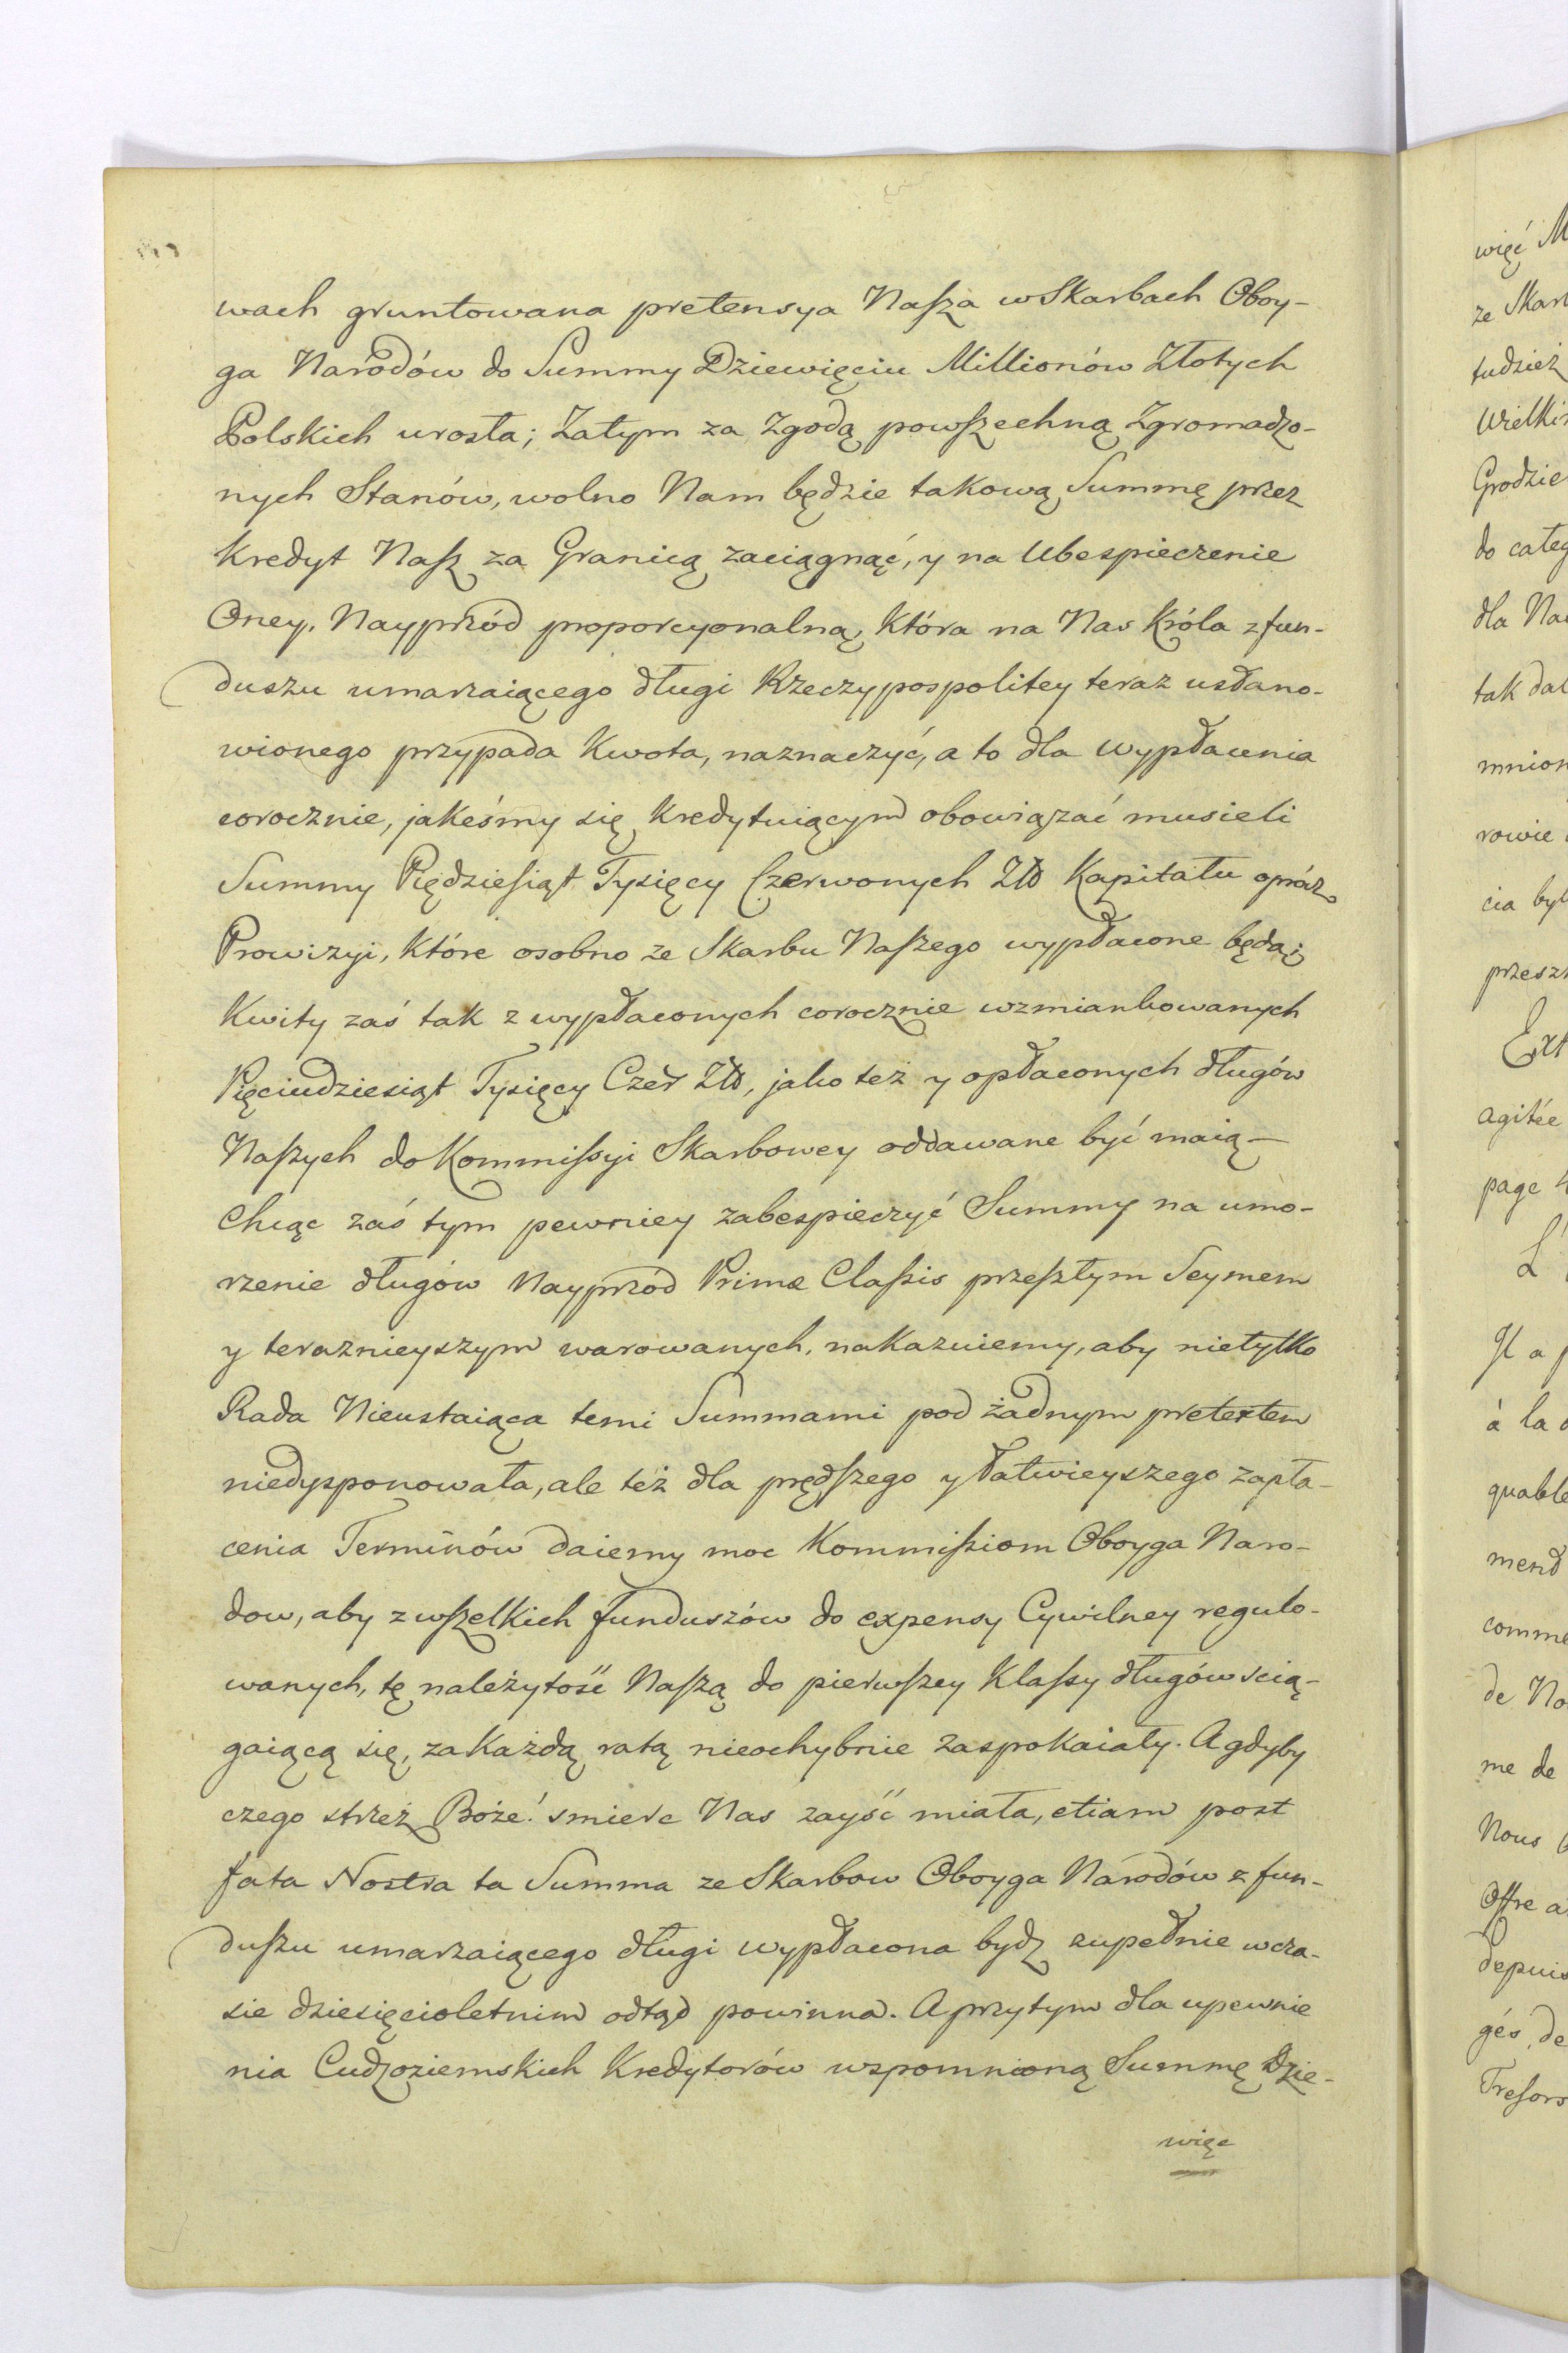 wach gruntowana pretensya Nasza w Skarbach Oboy-
ga Narodów do Summy Dziewięciu Millionów Złotych
Polskich urosła; Zatym za Zgodą powszechną Zgromadzo-
nych Stanów, wolno Nam będzie takową Summę przez
Kredyt Nasz za Granicą zaciągnąć, y na Ubespieczenie
Oney. Nayprzód proporcyonalną, Która na Nas Króla z fun-
duszu umarzaiącego długi Rzeczypospolitey teraz ustano-
wionego przypada Kwota, naznaczyć, a to dla wypłacenia
corocznie, jakeśmy się Kredytuiącym obowiązać musieli
Summy Piędziesiąt Tysięcy Czerwonych Zło Kapitału oprócz
Prowizyi, Które osobno ze Skarbu Naszego wypłacone będą;
Kwity zaś tak z wypłaconych corocznie wzmiankowanych
Pięciudziesiąt Tysięcy Czer Zło, jako też y opłaconych długów
Naszych do Kommissyi Skarbowey oddawane być maią —
Chcąc zaś tym pewniey zabespieczyć Summy na umo-
rzenie długów Nayprzód Primæ Classis przeszłym Seymem
y teraznieyszym warowanych, nakazuiemy, aby nietylko
Rada Nieustaiąca temi Summami pod żadnym pretextem
niedysponowała, ale też dla prędszego y łatwieyszego zapła-
cenia Terminów daiemy moc Kommissiom Oboyga Naro-
dow, aby z wszelkich funduszów do expensy Cywilney regulo-
wanych, tę należytość Naszą do pierwszey Klassy długów scią-
gaiącą się, za Każdą ratą nieochybnie zaspokaiały. A gdyby
czego strzeż Boże! smierc Nas zayść miała, etiam post
fata Nostra ta Summa ze Skarbow Oboyga Narodów z fun-
duszu umarzaiącego długi wypłacona bydz zupełnie w cza-
sie dziesięcioletnim odtąd powinna. A przytym dla upewnie
nia Cudzoziemskich Kredytorów wspomnioną Summę Dzie-
więc
więć M
ze Skar
tudzież
Wielki
Grodzie
do categ
dla Na
tak dal
mnion
rowie
cia był
przesz
Ext
agitée
page 4
L'
Il a p
à la
quable
mend
comme
de No
me de
Nous
Offre a
depuis
gés, de
Tresors